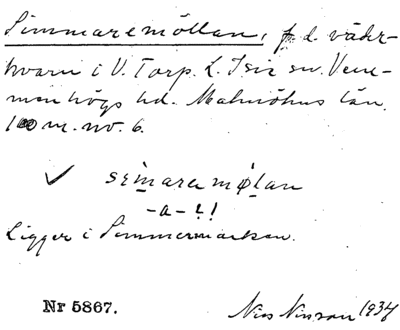 Simmaremöllan, f. d. väder-
kvarn i V. Torp. L. Isie sn. Vem-
menhögs hd. Malmöhus län.
100 m. nv. 6.
✓ simaramølan
-a-!
Ligger i Simmermarken.
Nr 5867. Nils Nilsson 1934